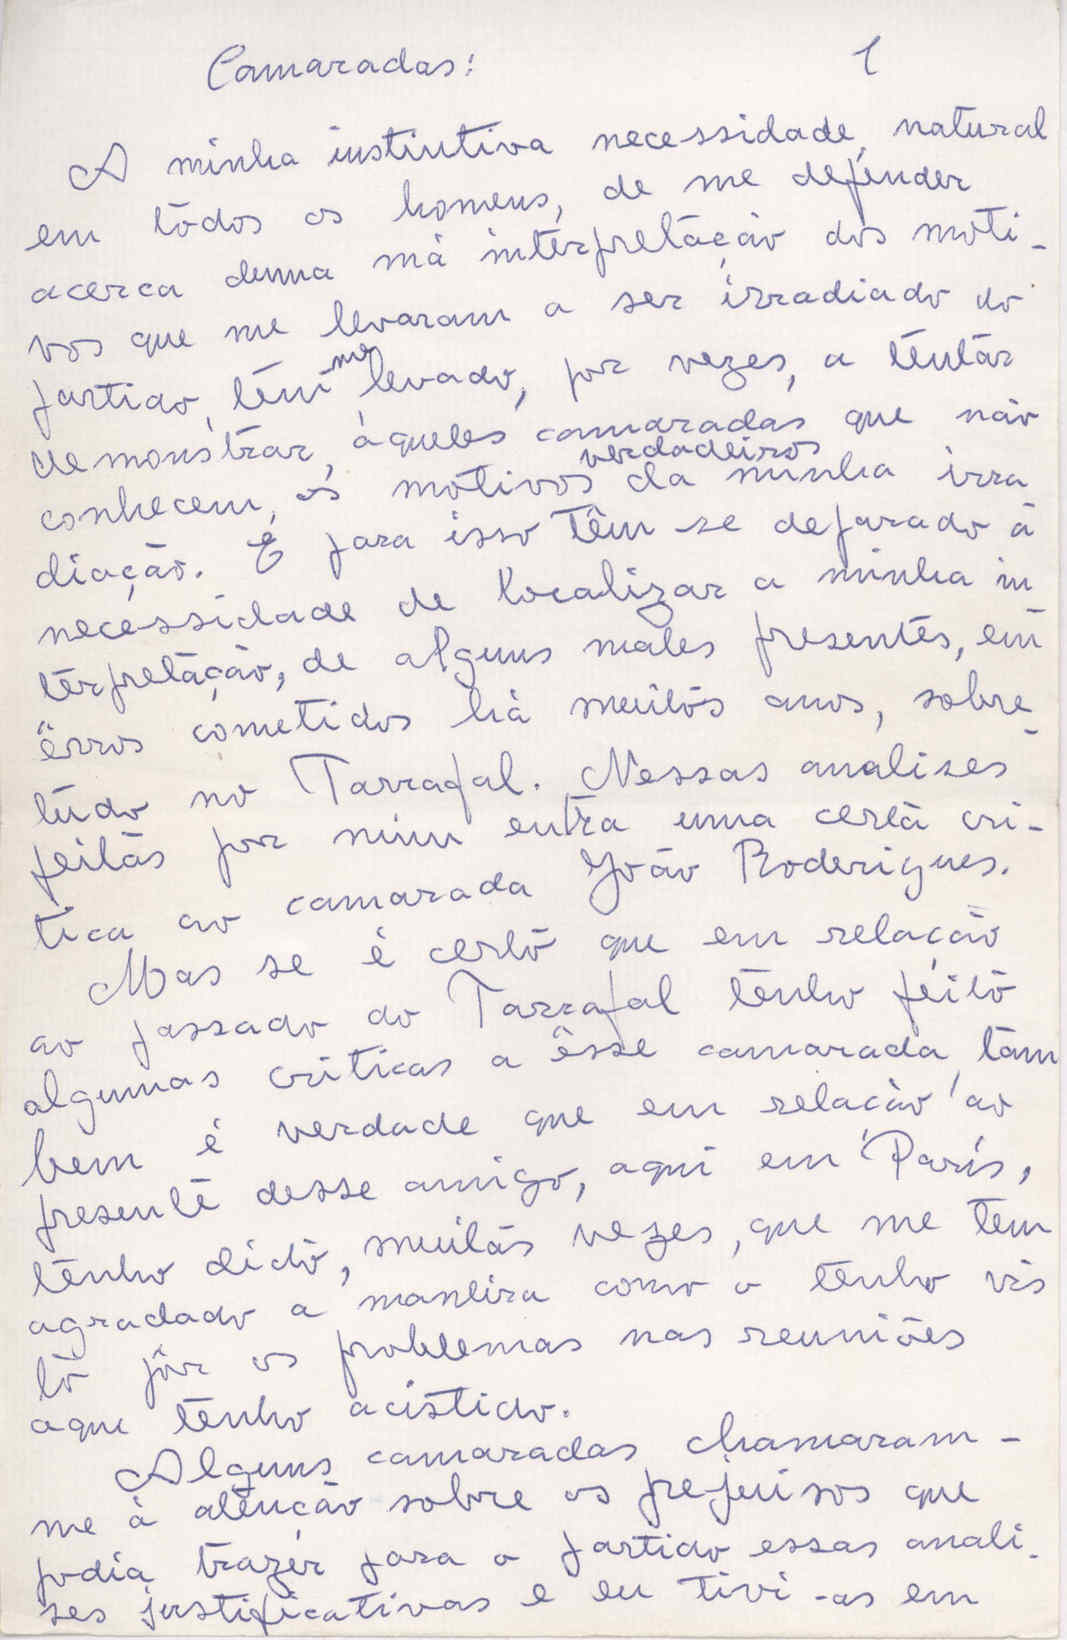 Camaradas: 1
A minha instintiva necessidade, natural
em tôdos os homens, de me defender
acerca duma má interpretação dos moti-
vos que me levaram a ser irradiado do
partido, têm me levado, por vezes, a tentar
demonstrar, áqueles camaradas que não
conhecem, os motivos verdadeiros da minha irra
diação. E para isso têm-se deparado á
necessidade de localizar a minha in
terpretação, de alguns males presentes, em
êrros cometidos há muitos anos, sobre-
tudo no Tarrafal. Nessas analises
feitas por mim entra uma certa cri-
tica ao camarada João Roderigues.
Mas se é certo que em relação
ao passado do Tarrafal tenho feito
algumas criticas a êsse camarada, tam
bem é verdade que em relação ao
presente desse amigo, aqui em Paris,
tenho dito, muitas vezes, que me tem
agradado a maneira como o tenho vis
to pôr os problemas nas reuniões
aque tenho acistido.
Alguns camaradas chamaram-
me á atenção sobre os prejuisos que
podia trazer para o partido essas anali-
ses justificativas e eu tivi-as em